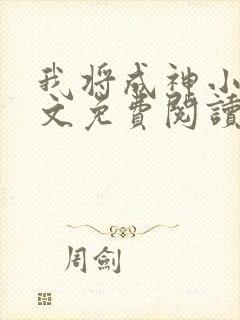 我将成神小
文免費閱讀
周劍